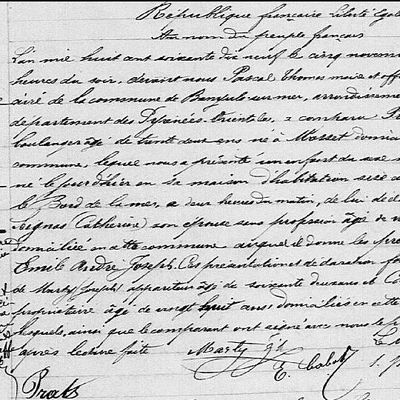 République française Liberté Egal
Au nom du peuple français
L'an mil huit cent soixante dix neuf le cinq novem
heures du soir, devant nous Pascal Thomas maire et offi
de la commune de Banyuls-sur-mer, arrondissemen
département des Pyrénées-Orientales, a comparu
boulanger âgé de trente deux ans né à Mosset domici
commune, lequel nous a présenté un enfant du sexe m
né le jour d'hier en sa maison d'habitation sise
le Bord de la mer, a deux heures du matin, de lui dé
(Catherine) son épouse sans profession âgée de
domiciliée en cette commune auquel il donne les pré
Emile André Joseph. Ces présentation et déclaration fai
de Marty (Joseph) appariteur âgé de soixante deux ans et
propriétaire âgé de vingt huit ans domiciliés en cette
lesquels, ainsi que le comparant ont signé avec nous le p
après lecture faite Marty